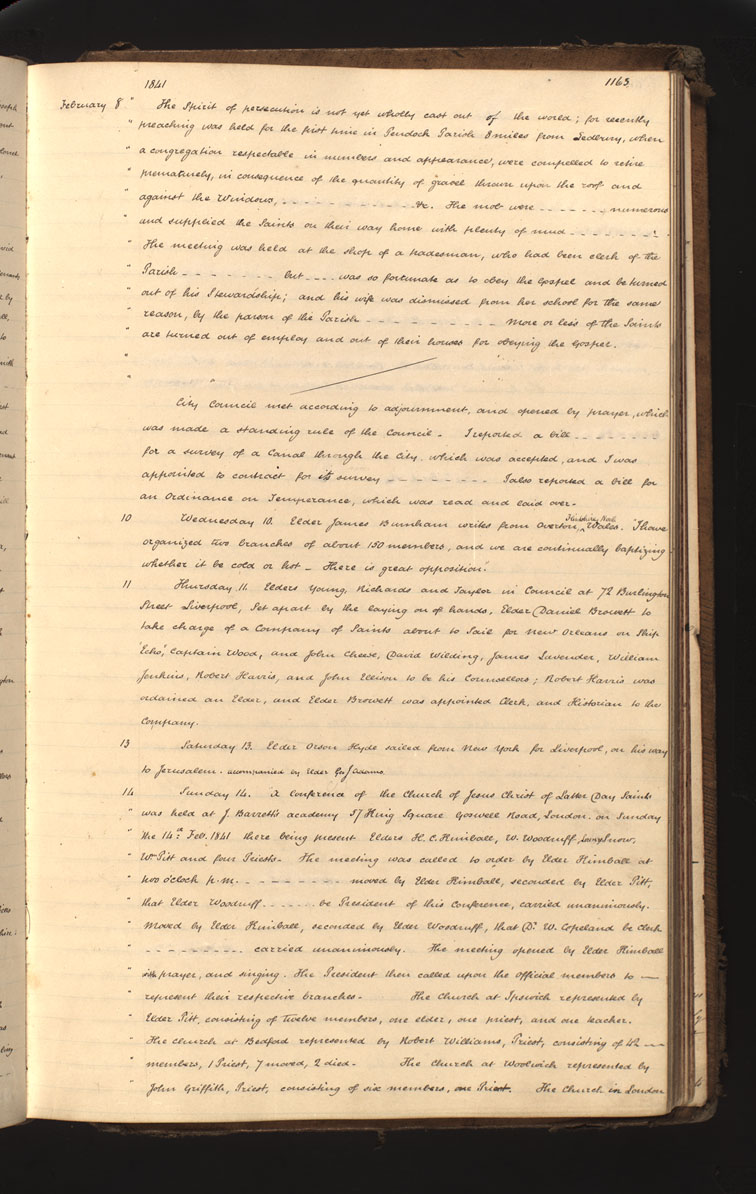 1841 1163
February 8 " The Spirit of persecution is not yet wholly cast out of the world; for recently
" preaching was held for the first time in Pendock Parish 8 miles from Ledbury, when
" a congregation respectable in numbers and appearance, were compelled to retire
" prematurely, in consequence of the quantity of gravel thrown upon the roof and
" against the Windows, - - - - - - - - - - &c. The mob were - - - - - numerous
" and supplied the Saints on their way home with plenty of mud - - - - - - -.
" The meeting was held at the shop of a tradesman, who had been clerk of the
" Parish - - - - - - - - but - - - was so fortunate as to obey the Gospel and be turned
" out of his Stewardship; and his wife was dismissed from her school for the same
" reason, by the parson of the Parish - - - - - - - - - - More or less of the Saints
" are turned out of employ and out of their houses for obeying the Gospel.
"
" "
City Council met according to adjournment, and opened by prayer, which
was made a standing rule of the Council - I reported a bill - - - - - - -
for a survey of a Canal through the City, which was accepted, and I was
appointed to contract for its survey - - - - - - - - I also reported a bill for
an Ordinance on Temperance, which was read and laid over -
10 Wednesday 10. Elder James Burnham writes from Overton, Flintshire, North Wales. "I have
organized two branches of about 150 members, and we are continually baptizing
whether it be cold or hot - There is great opposition".
11 Thursday 11. Elders Young, Richards and Taylor in Council at 72 Burlington
Street Liverpool, Set apart by the laying on of hands, Elder Daniel Browett to
take charge of a Company of Saints about to Sail for New Orleans on Ship
"Echo", Captain Wood, and John Cheese, David Wilding, James Lavender, William
Jenkins, Robert Harris, and John Ellison to be his Counsellors; Robert Harris was
ordained an Elder, and Elder Browett was appointed Clerk, and Historian to the
Company.
13 Saturday 13. Elder Orson Hyde sailed from New York for Liverpool, on his way
to Jerusalem. accompanied by Elder Geo J Adams
14 Sunday 14. "A conference of the Church of Jesus Christ of Latter Day Saints
" was held at J. Barrett's academy 57 King Square Goswell Road, London. on Sunday
" the 14th Feb. 1841 there being present Elders H. C. Kimball, W. Woodruff, Lorenzo Snow,
" Wm Pitt and four Priests - The meeting was called to order by Elder Kimball at
" two o'clock p.m. - - - - - - - - moved by Elder Kimball, seconded by Elder Pitt,
" that Elder Woodruff - - - - - be President of this Conference, carried unanimously.
" Moved by Elder Kimball, seconded by Elder Woodruff, that Dr. W. Copeland be Clerk
" - - - - - - - - - carried unanimously. The meeting opened by Elder Kimball
" with prayer, and singing. The President then called upon the official members to —
" represent their respective branches - The Church at Ipswich represented by
" Elder Pitt, consisting of twelve members, one elder, one priest, and one teacher.
" The church at Bedford represented by Robert Williams, Priest, consisting of 42 —
" members, 1 Priest, 7 moved, 2 died - The Church at Woolwich represented by
" John Griffith, Priest, consisting of six members, one Priest. The Church in London